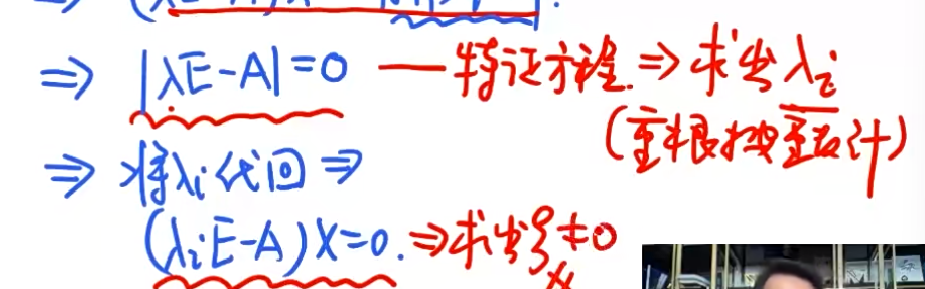 ⇒ |λE-A|=0 —特征方程. ⇒ 求出λi
(重根按重数计)
⇒ 将λi代回 ⇒
(λiE-A)X=0. ⇒ 求出ξ≠0